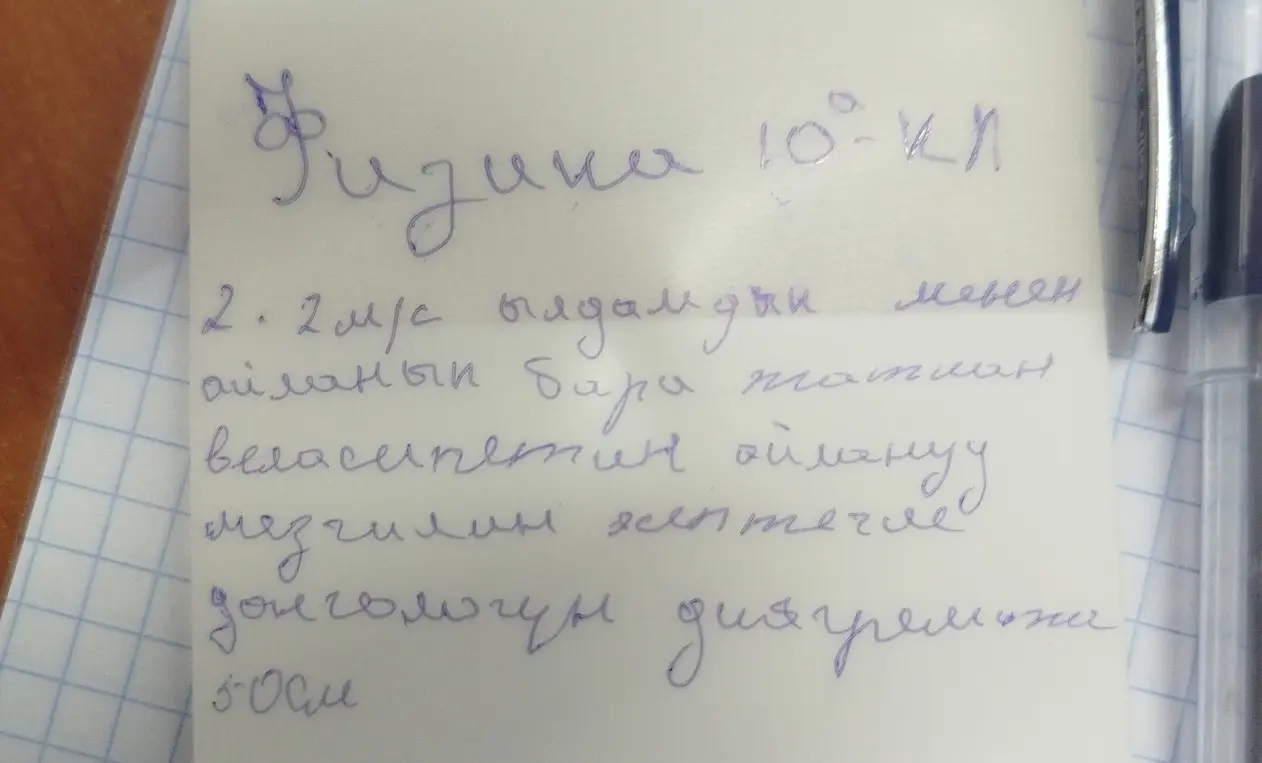 Физика 10ª-кл
2. 2м/с ылдамдык менен
айланып бара жаткан
веласипетин айлануу
мезгилин эсептегиле
дөнгөлөгүн диаграммасы
50см